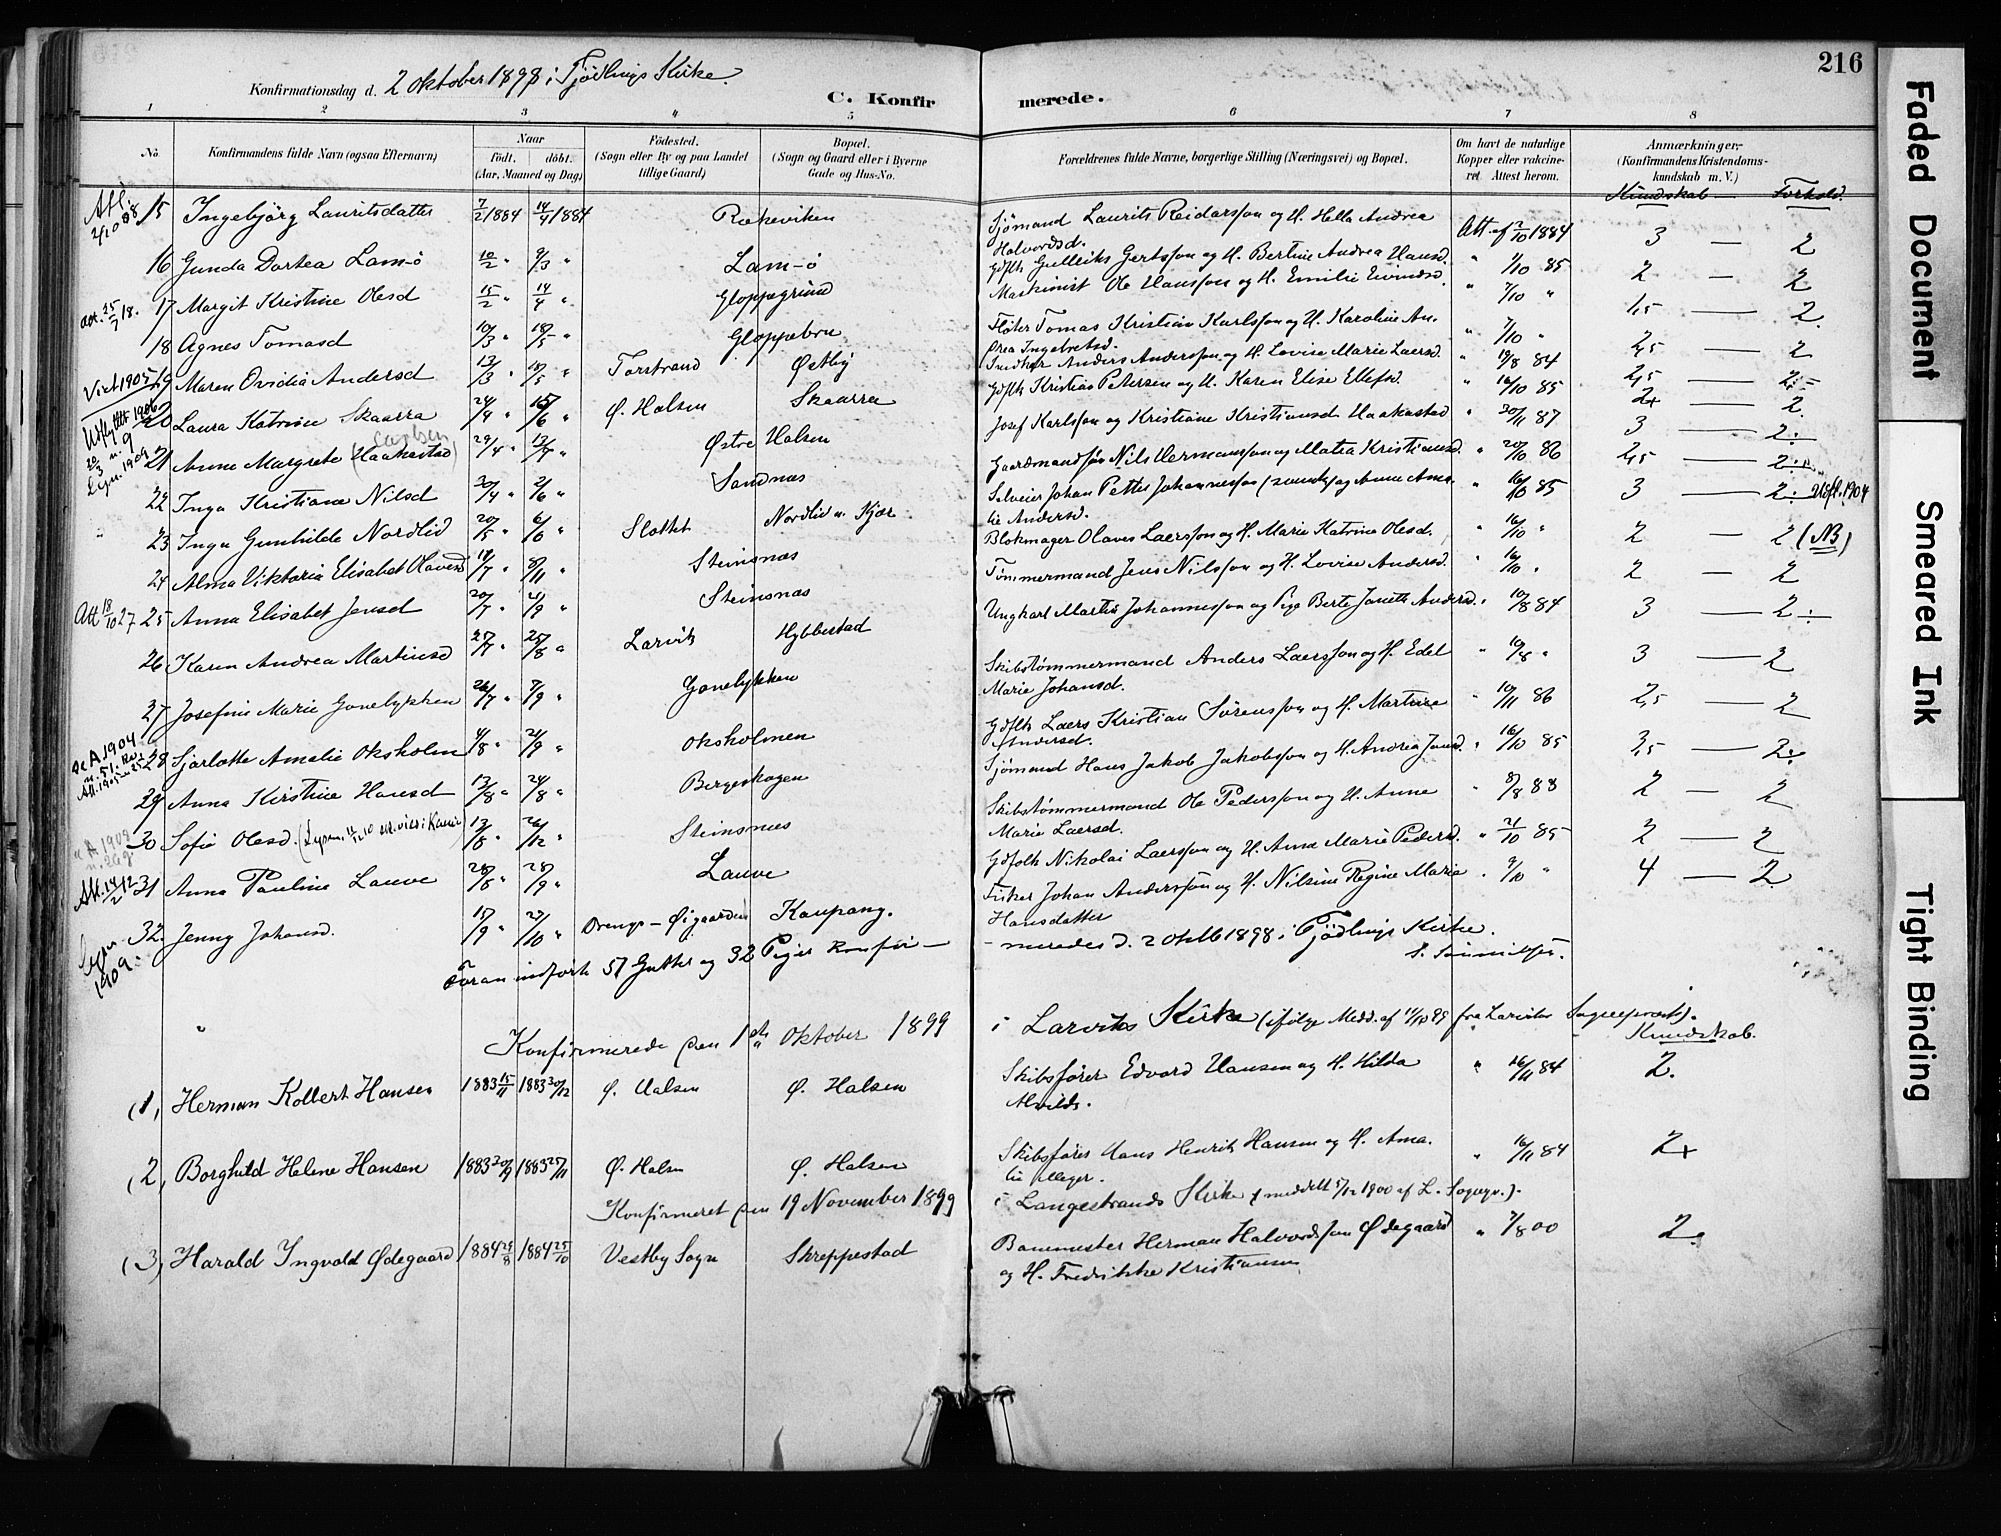 216
Konfirmationsdag d. 2 Oktober 1898 i Tjødlings Kirke
C. Konfirmerede.
1 2 3 4 5 6 7 8
No.
Konfirmandens fulde Navn (ogsaa Efternavn)
Naar
født. døbt.
(Aar, Maaned og Dag)
Fødested.
(Sogn eller By og paa Landet
tillige Gaard)
Bopæl.
(Sogn og Gaard eller i Byerne
Gade og Hus-No.
Forældrenes fulde Navne, borgerlige Stilling (Næringsvei) og Bopæl.
Om havt de naturlige
Kopper eller vakcine-
ret. Attest herom.
Anmærkninger
(Konfirmandens Kristendoms-
kundskab m. V.)
Kundskab — Forhold.
15 Ingebjørg Lauritsdatter 7/2 1884 14/4 1884 Rækeviken Sjømand Laurits Reidarsson og H. Helle Andrea Att. af 2/10 1884 3 — 2
Halvordsd.
16 Gunda Dortea Lam-ø 10/2 " 9/3 " Lam-ø Gdflk Gulleiks Gertsson og H. Bertine Andrea Hansd. " 7/10 85 2 — 2
att. 25/7 18. 17 Margit Kristine Olesd 15/2 " 14/4 " Gloppegrind Maskinist Ole Hansson og H. Emilie Eivindsd. " 7/10 " 1,5 — 2.
18 Agnes Tomasd 10/3 " 18/5 " Gloppebru Fløter Tomas Kristian Karlsson og H. Karoline An. " 7/10 " 2,5 — 2
drea Ingebretsd.
Viet 1905 19 Maren Ovidia Andersd 13/3 " 18/5 " Torstrand Østby Anders Andersson og H. Lovise Marie Laersd. " 19/8 84 2,5 — 2,5
Udflyttet 1906 20 Laura Katrine Skaarra 24/4 " 15/6 " Ø. Halsen Skaarra Gdflk Kristian Petersen og H. Karen Elise Ellefsd. " 16/10 85 2+ — 2.
Lysn. 1909 21 Anna Margrete (Haakestad) 29/4 " 13/7 " Østre Halsen Josef Karlsson og Kristiane Kristiansd Haakestad " 30/11 87 3 — 2:
22 Inga Kristiane Nilsd 30/4 " 2/6 " Sandnæs Gaardmandssøn Nils Hermansson og Matea Kristiansd. " 20/10 86 2,5 — 2:
23 Inga Gunhilde Nordlid 20/5 " 6/6 " Slottet Nordlid u. Kjær Selveier Johan Petter Johannesson og Anne Ama. " 16/10 85 3 — 2: Udfl. 1904
lie Andersd.
24 Alma Viktoria Elisabet Olavesd 18/7 " 8/11 " Steinsnæs Blokmager Olaves Laersson og H. Marie Katrine Olesd. " 16/10 " 2 — 2 (NB)
Att 18/10 27 25 Anna Elisabet Jensd 20/7 " 21/9 " Steinsnæs Tømmermand Jens Nilsson og H. Lovise Andersd. " 16/10 " 2 — 2
26 Karen Andrea Martinsd 25/7 " 25/8 " Larvik Hybbestad Ungkarl Martin Johannesson og Pige Berte Janette Andersd. " 19/8 84 3 — 2:
27 Josefine Marie Gonelykken 26/7 " 7/9 " Gonelykken Skibstømmermand Anders Laersson og H. Edel " 19/8 " 3 — 2
Marie Johansd.
28 Sjarlotte Amalie Oksholm 4/8 " 21/9 " Oksholmen Gdflk Laers Kristian Sørensson og H. Martine " 10/11 86 2,5 — 2
Andersd.
29 Anna Kristine Hansd 13/8 " 24/8 " Bergeskogen Sjømand Hans Jakob Jakobsson og H. Andrea Jansd. " 16/10 85 3,5 — 2:
30 Sofie Olesd. 13/8 " 26/12 " Steinsnæs Skibstømmermand Ole Pedersson og H. Anne " 8/8 88 2 — 2
Marie Laersd.
Att. 14/2 12 31 Anna Pauline Lauve 28/8 " 28/9 " Lauve Gdfolk Nikolai Laersson og H. Anne Marie Pedersd. " 21/10 85 2 — 2
Lysn. 1909. 32. Jenny Johansd. 15/9 " 27/10 " Øigaarden Kaupang. Fisker Johan Andersson og H. Nilsine Regine Marie " 9/10 " 4 — 2
Hansdatter
Foran indførte 57 Gutter og 32 Piger konfir— —meredes d. 2 oktb 1898 i Tjødlings Kirke.
Konfirmerede den 1ste Oktober 1899 i Larviks Kirke (ifølge Medd. af 11/10 99 fra Larviks Sognepræst).
Kundskab.
(1, Herman Kollert Hansen 1883 15/11 1883 20/12 Ø. Halsen Ø. Halsen Skibsfører Edvard Hansen og H. Hilda " 26/11 84 2.
Alvilde.
(2, Borghild Helene Hansen 1883 20/9 1883 25/11 Ø. Halsen Ø. Halsen Skibsfører Hans Henrik Hansen og H. Ama. " 16/11 84 2+
lie Meyer.
Konfirmeret den 19 November 1899 i Langestrands Kirke (meddelt 5/12 1900 af L. Sogepr.).
(3, Harald Ingvald Ødegaard 1884 29/8 1884 25/10 Vestby Sogn Skreppestad Banemester Herman Halvordsson Ødegaard " 7/8 00 2.
og H. Fredrikke Kristiansen
Faded Document
Smeared Ink
Tight Binding